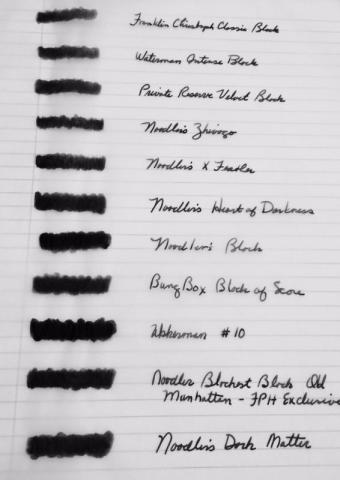 Franklin Christoph Classic Black
Waterman Intense Black
Private Reserve Velvet Black
Noodler's Zhivago
Noodler's X Feather
Noodler's Heart of Darkness
Noodler's Black
Bung Box Black of Score
Waterman #10
Noodler Blackest Black Old
Manhattan - FPH Exclusive
Noodler's Dark Matter